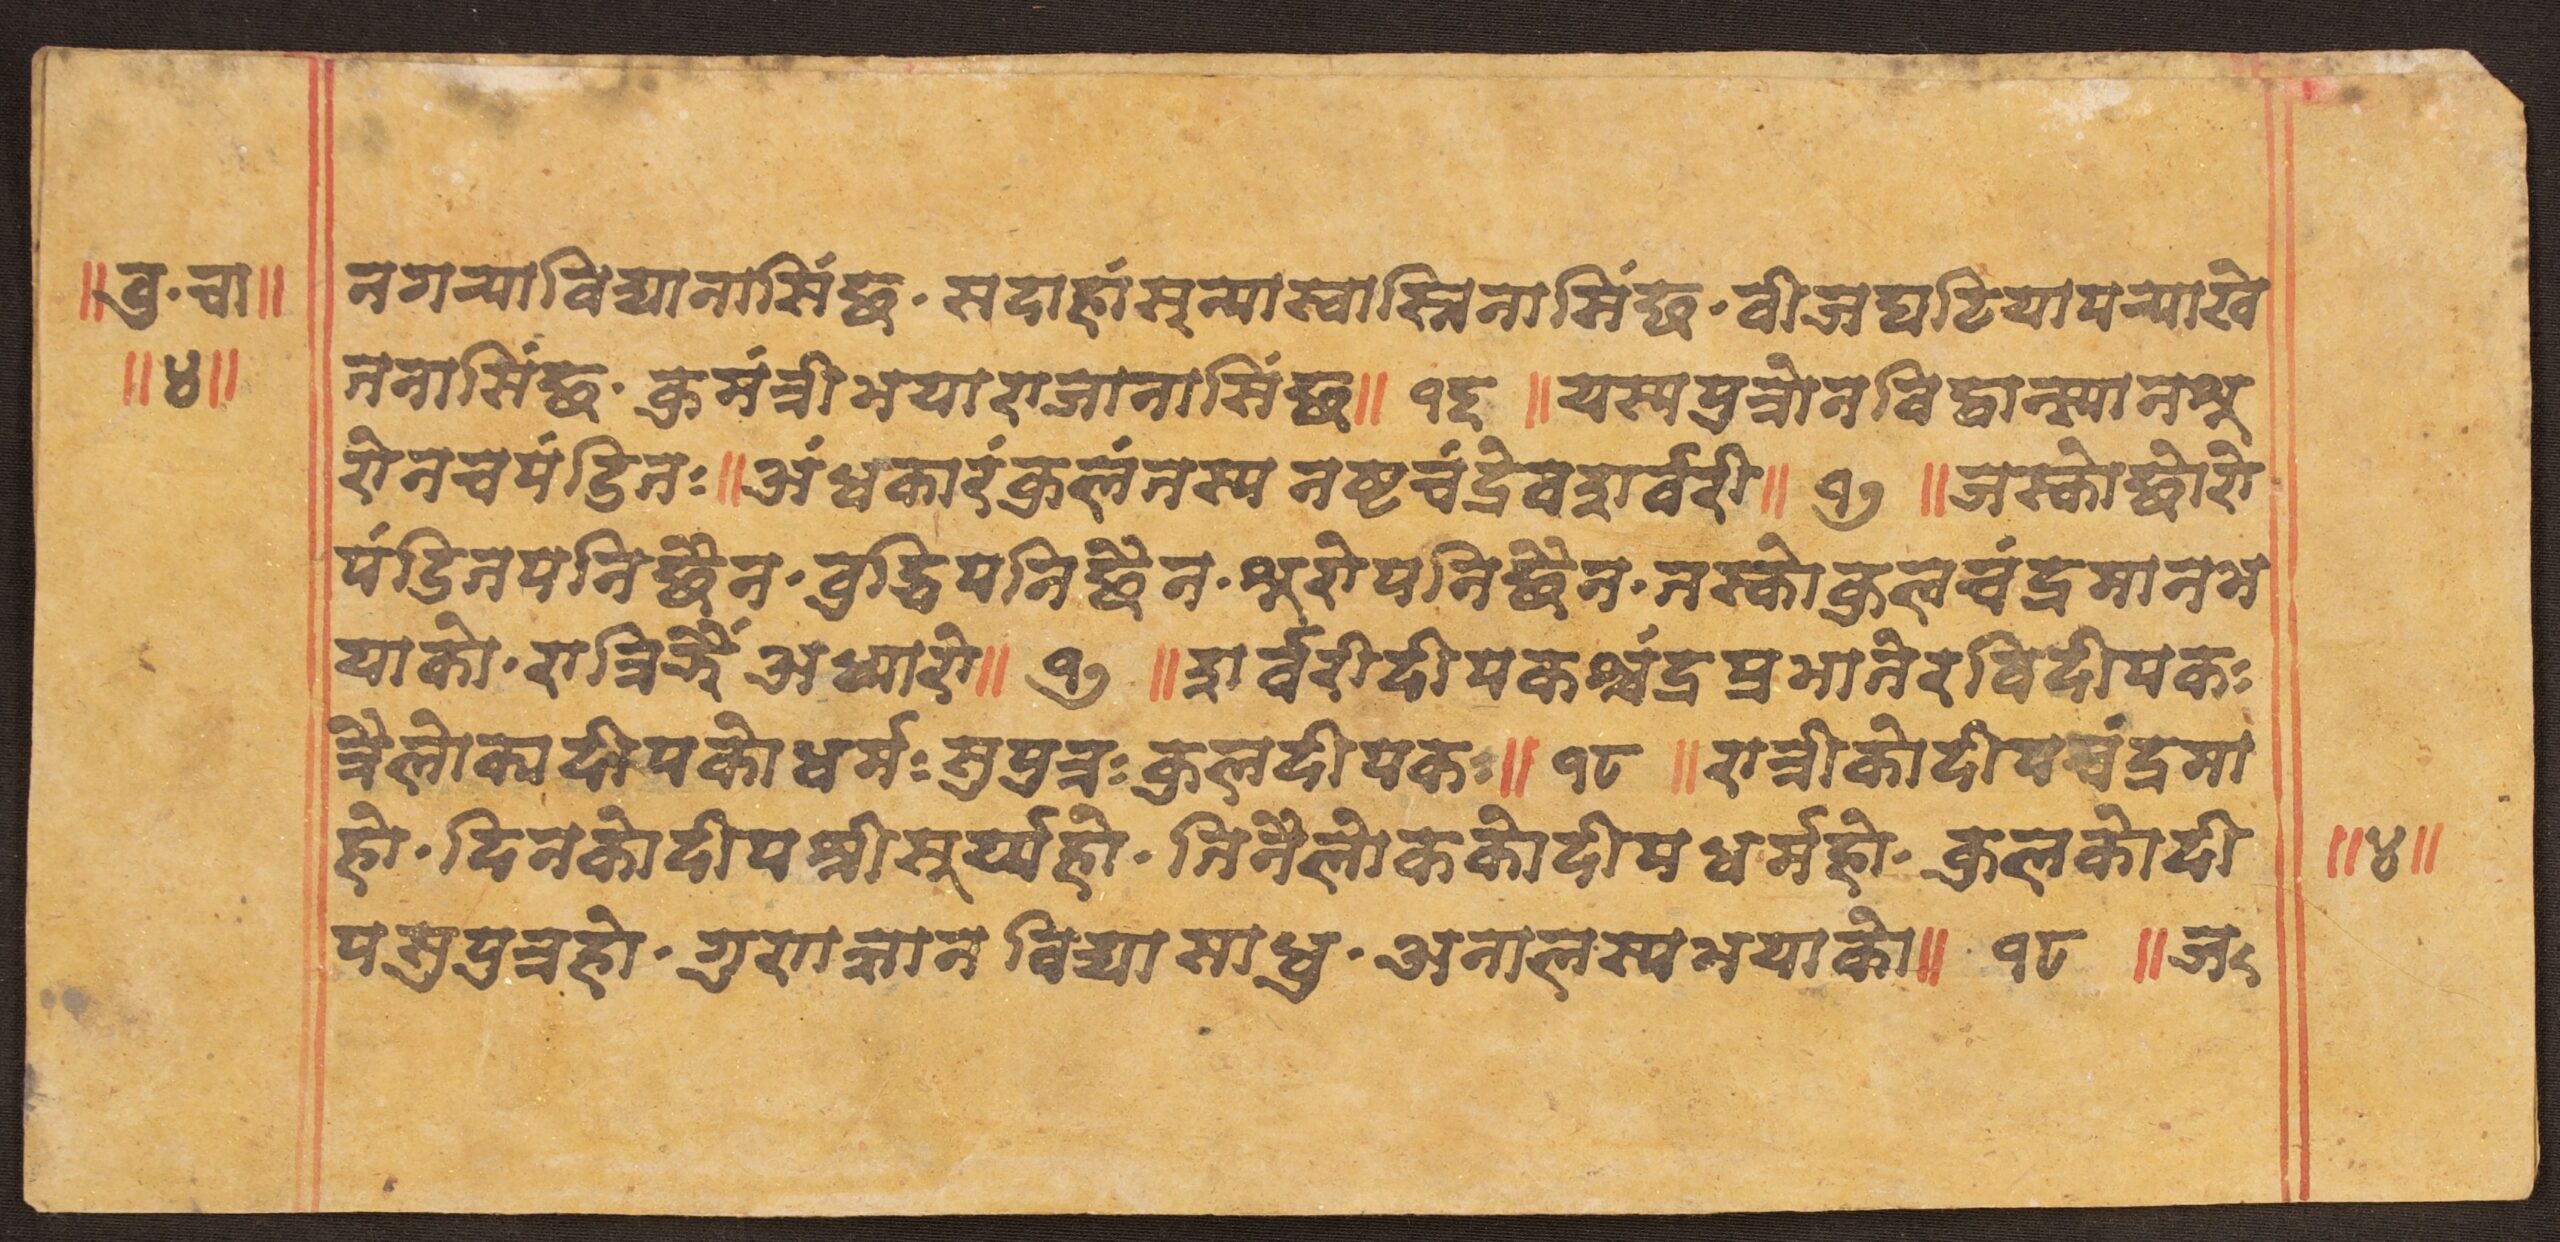 ॥वु·चा॥
॥४॥
नगर्‍याविद्यानासिंछ·सदाहांसून्यास्वास्निनासिंछ·वीजघटियापर्‍याखे
तनासिंछ·कुमंत्रीभयाराजानासिंछ॥१६॥यस्यपुत्रोनविद्वान्स्यानशू
रोनचपंडितः॥अंधकारंकुलंतस्यनष्टचंद्रेवशर्वरी॥१७॥जस्कोछोरो
पंडितपनिछैन·वुद्धिपनिछैन·शूरोपनिछैन·तस्कोकुलचंद्रमानभ
याको·रात्रिझैँअध्यारो॥१७॥शर्वरीदीपकश्चंद्रप्रभातेरविदीपकः
त्रैलोक्यदीपकोधर्मःसुपुत्रःकुलदीपकः॥१८॥रात्रीकोदीपचंद्रमा
हो·दिनकोदीपश्रीसूर्य्यहो·तिनैलोककोदीपधर्महो·कुलकोदी
पसुपुत्रहो·गुणज्ञानविद्यासाधु·अनालस्यभयाको॥१८॥ज
॥४॥